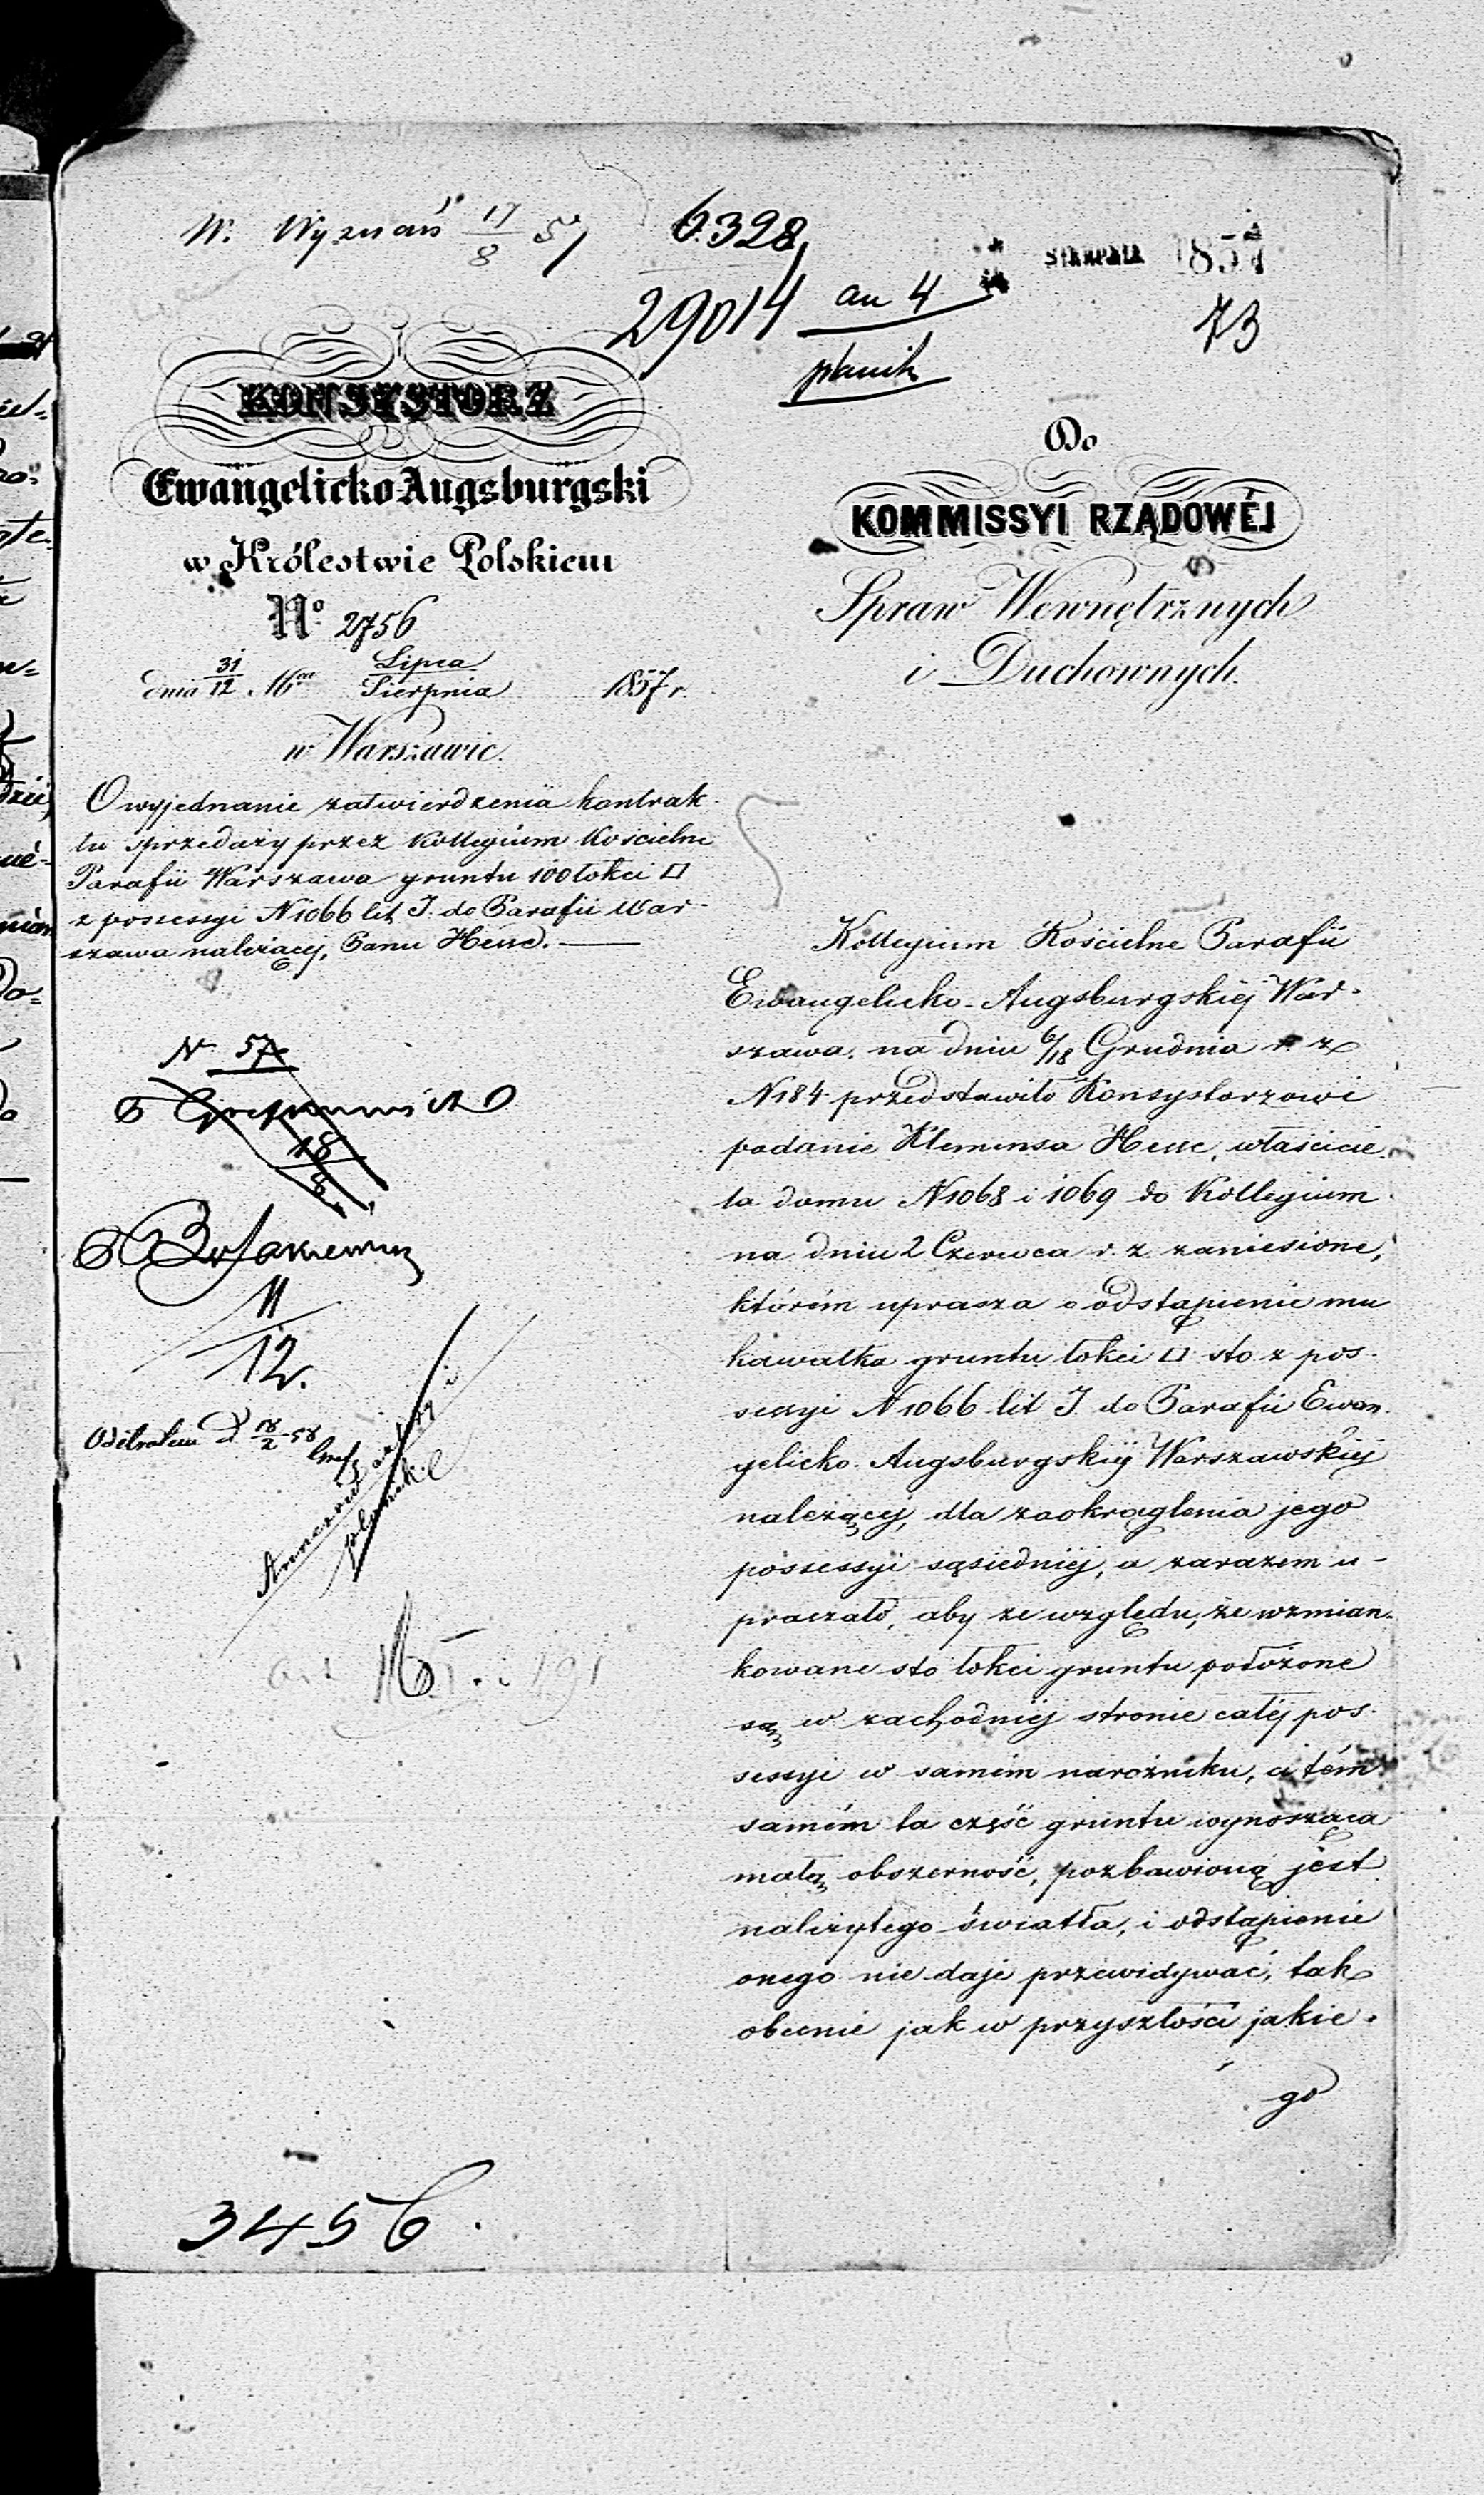 W. Wyznań 17/8 57
6.328,
29014
an 4
planik
SIERPNIA 1857
73
KONSYSTORZ
Ewangelicko Augsburgski
w Królestwie Polskiem
No. 2756
dnia 31/12 Lipca/Sierpnia 1857 r.
w Warszawie.
O wyjednanie zatwierdzenia kontrak-
tu sprzedaży przez Kollegium Kościelne
Parafii Warszawa gruntu 100 łokci □
z possessyi N 1066 lit J. do Parafii War-
szawa należącej, Panu
N. 57
18/8
11
12.
Odebrałem d. 18/2 58
3456.
Do
KOMMISSYI RZĄDOWÉJ
Spraw Wewnętrznych
i Duchownych.
Kollegium Kościelne Parafii
Ewangelicko-Augsburgskiéj War-
szawa. na dniu 6/18 Grudnia r. z
N 184 przedstawiło Konsystorzowi
podanie Klemensa właścicie-
la domu N 1068 i 1069 do Kollegium
na dniu 2 Czerwca r. z. zaniesione,
którém uprasza o odstąpienie mu
kawałka gruntu łokci □ sto z pos-
sessyi N 1066 lit J. do Parafii Ewan-
gelicko-Augsburgskiéj Warszawskiéj
należącej, dla zaokrąglenia jego
possessyi sąsiedniéj, a zarazem u-
praszało, aby ze względu, że wzmian-
kowane sto łokci gruntu położone
są w zachodniéj stronie całéj pos-
sessyi w samém narożniku, a tém
samém ta część gruntu wynosząca
małą obszerność, pozbawioną jest
należytego światła, i odstąpienie
onego nie daje przewidywać, tak
obecnie jak w przyszłości jakie-
go